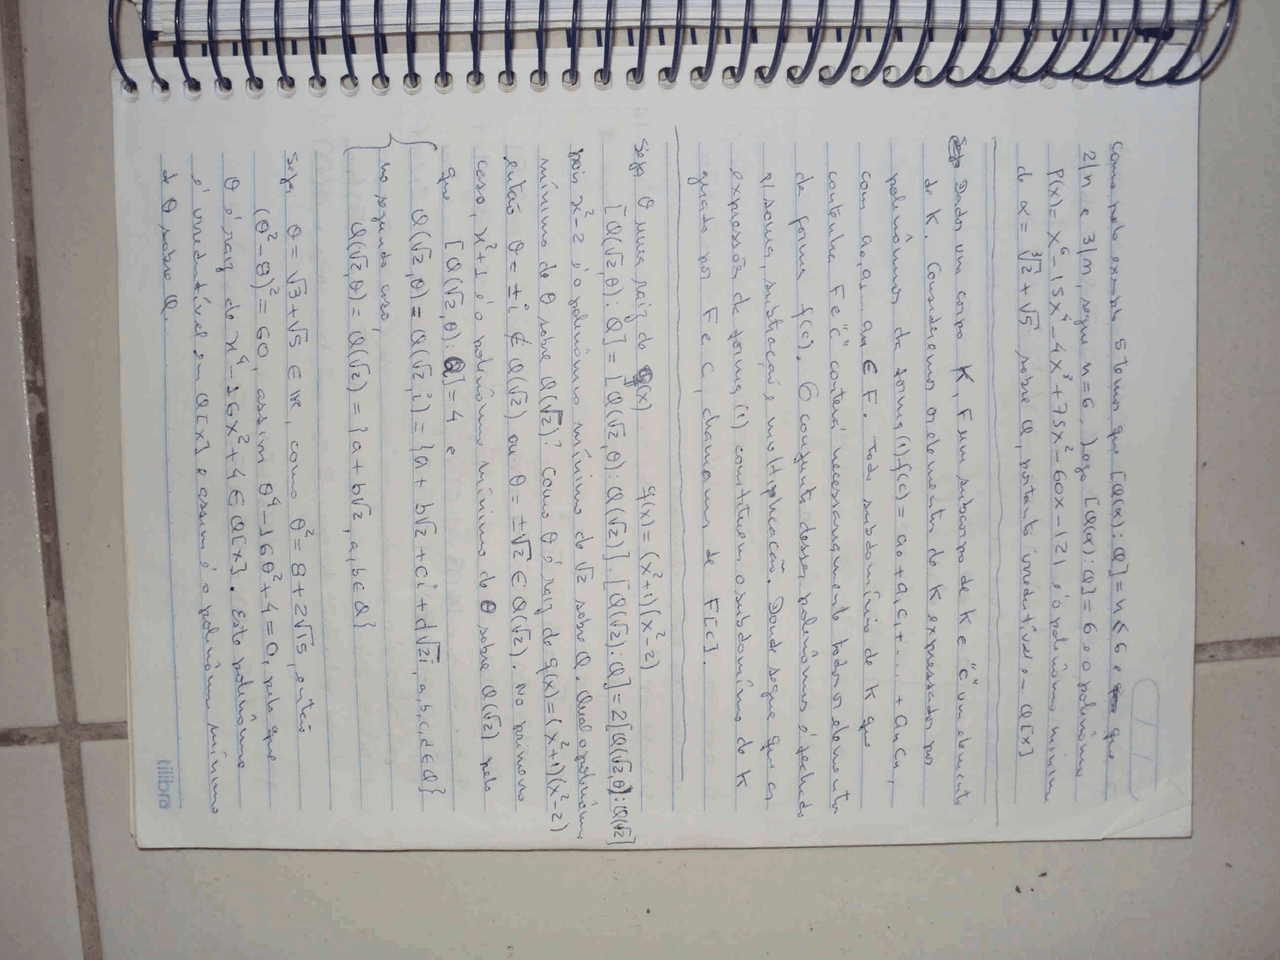 Como pelo exemplo 5 temos que [Q(α):Q]=n≤6 e que
2|n e 3|n, segue n=6, logo [Q(α):Q]=6 e o polinômio
P(x)=x⁶-15x⁴-4x³+75x²-60x-121 é o polinômio mínimo
de α=∛2+√5 sobre Q, portanto irredutível em Q[x]
Dados um corpo K, F um subcorpo de K e "c" um elemento
de K. Consideremos os elementos de K expressados por
polinômios da forma (1) f(c)=a₀+a₁c₁+....+aₙcₙ,
com a₀,a₁...aₙ∈F. Todo subdomínio de K que
contenha F e "c" conterá necessariamente todos os elementos
da forma f(c). O conjunto desses polinômios é fechado
p/ soma, subtração e multiplicação. Donde segue que as
expressões da forma (1) constituem o subdomínio de K
gerado por F e c, chamamos de F[c].
Seja θ uma raiz de q(x) q(x)=(x²+1)(x²-2)
[Q(√2,θ):Q]=[Q(√2,θ):Q(√2)].[Q(√2):Q]=2[Q(√2,θ):Q(√2)]
pois x²-2 é o polinômio mínimo de √2 sobre Q. Qual o polinômio
mínimo de θ sobre Q(√2)? Como θ é raiz de q(x)=(x²+1)(x²-2)
então θ=±i∉Q(√2) ou θ=±√2∈Q(√2). No primeiro
caso, x²+1 é o polinômio mínimo de θ sobre Q(√2) pelo
que [Q(√2,θ):Q]=4 e
Q(√2,θ)=Q(√2,i)={a+b√2+ci+d√2i, a,b,c,d∈Q}
no segundo caso,
Q(√2,θ)=Q(√2)={a+b√2, a,b∈Q}
Seja θ=√3+√5∈IR, como θ²=8+2√15, então
(θ²-8)²=60, assim θ⁴-16θ²+4=0, pelo que
θ é raiz de x⁴-16x²+4∈Q[x]. Este polinômio
é irredutível em Q[x] e assim é o polinômio mínimo
de θ sobre Q.
tilibra